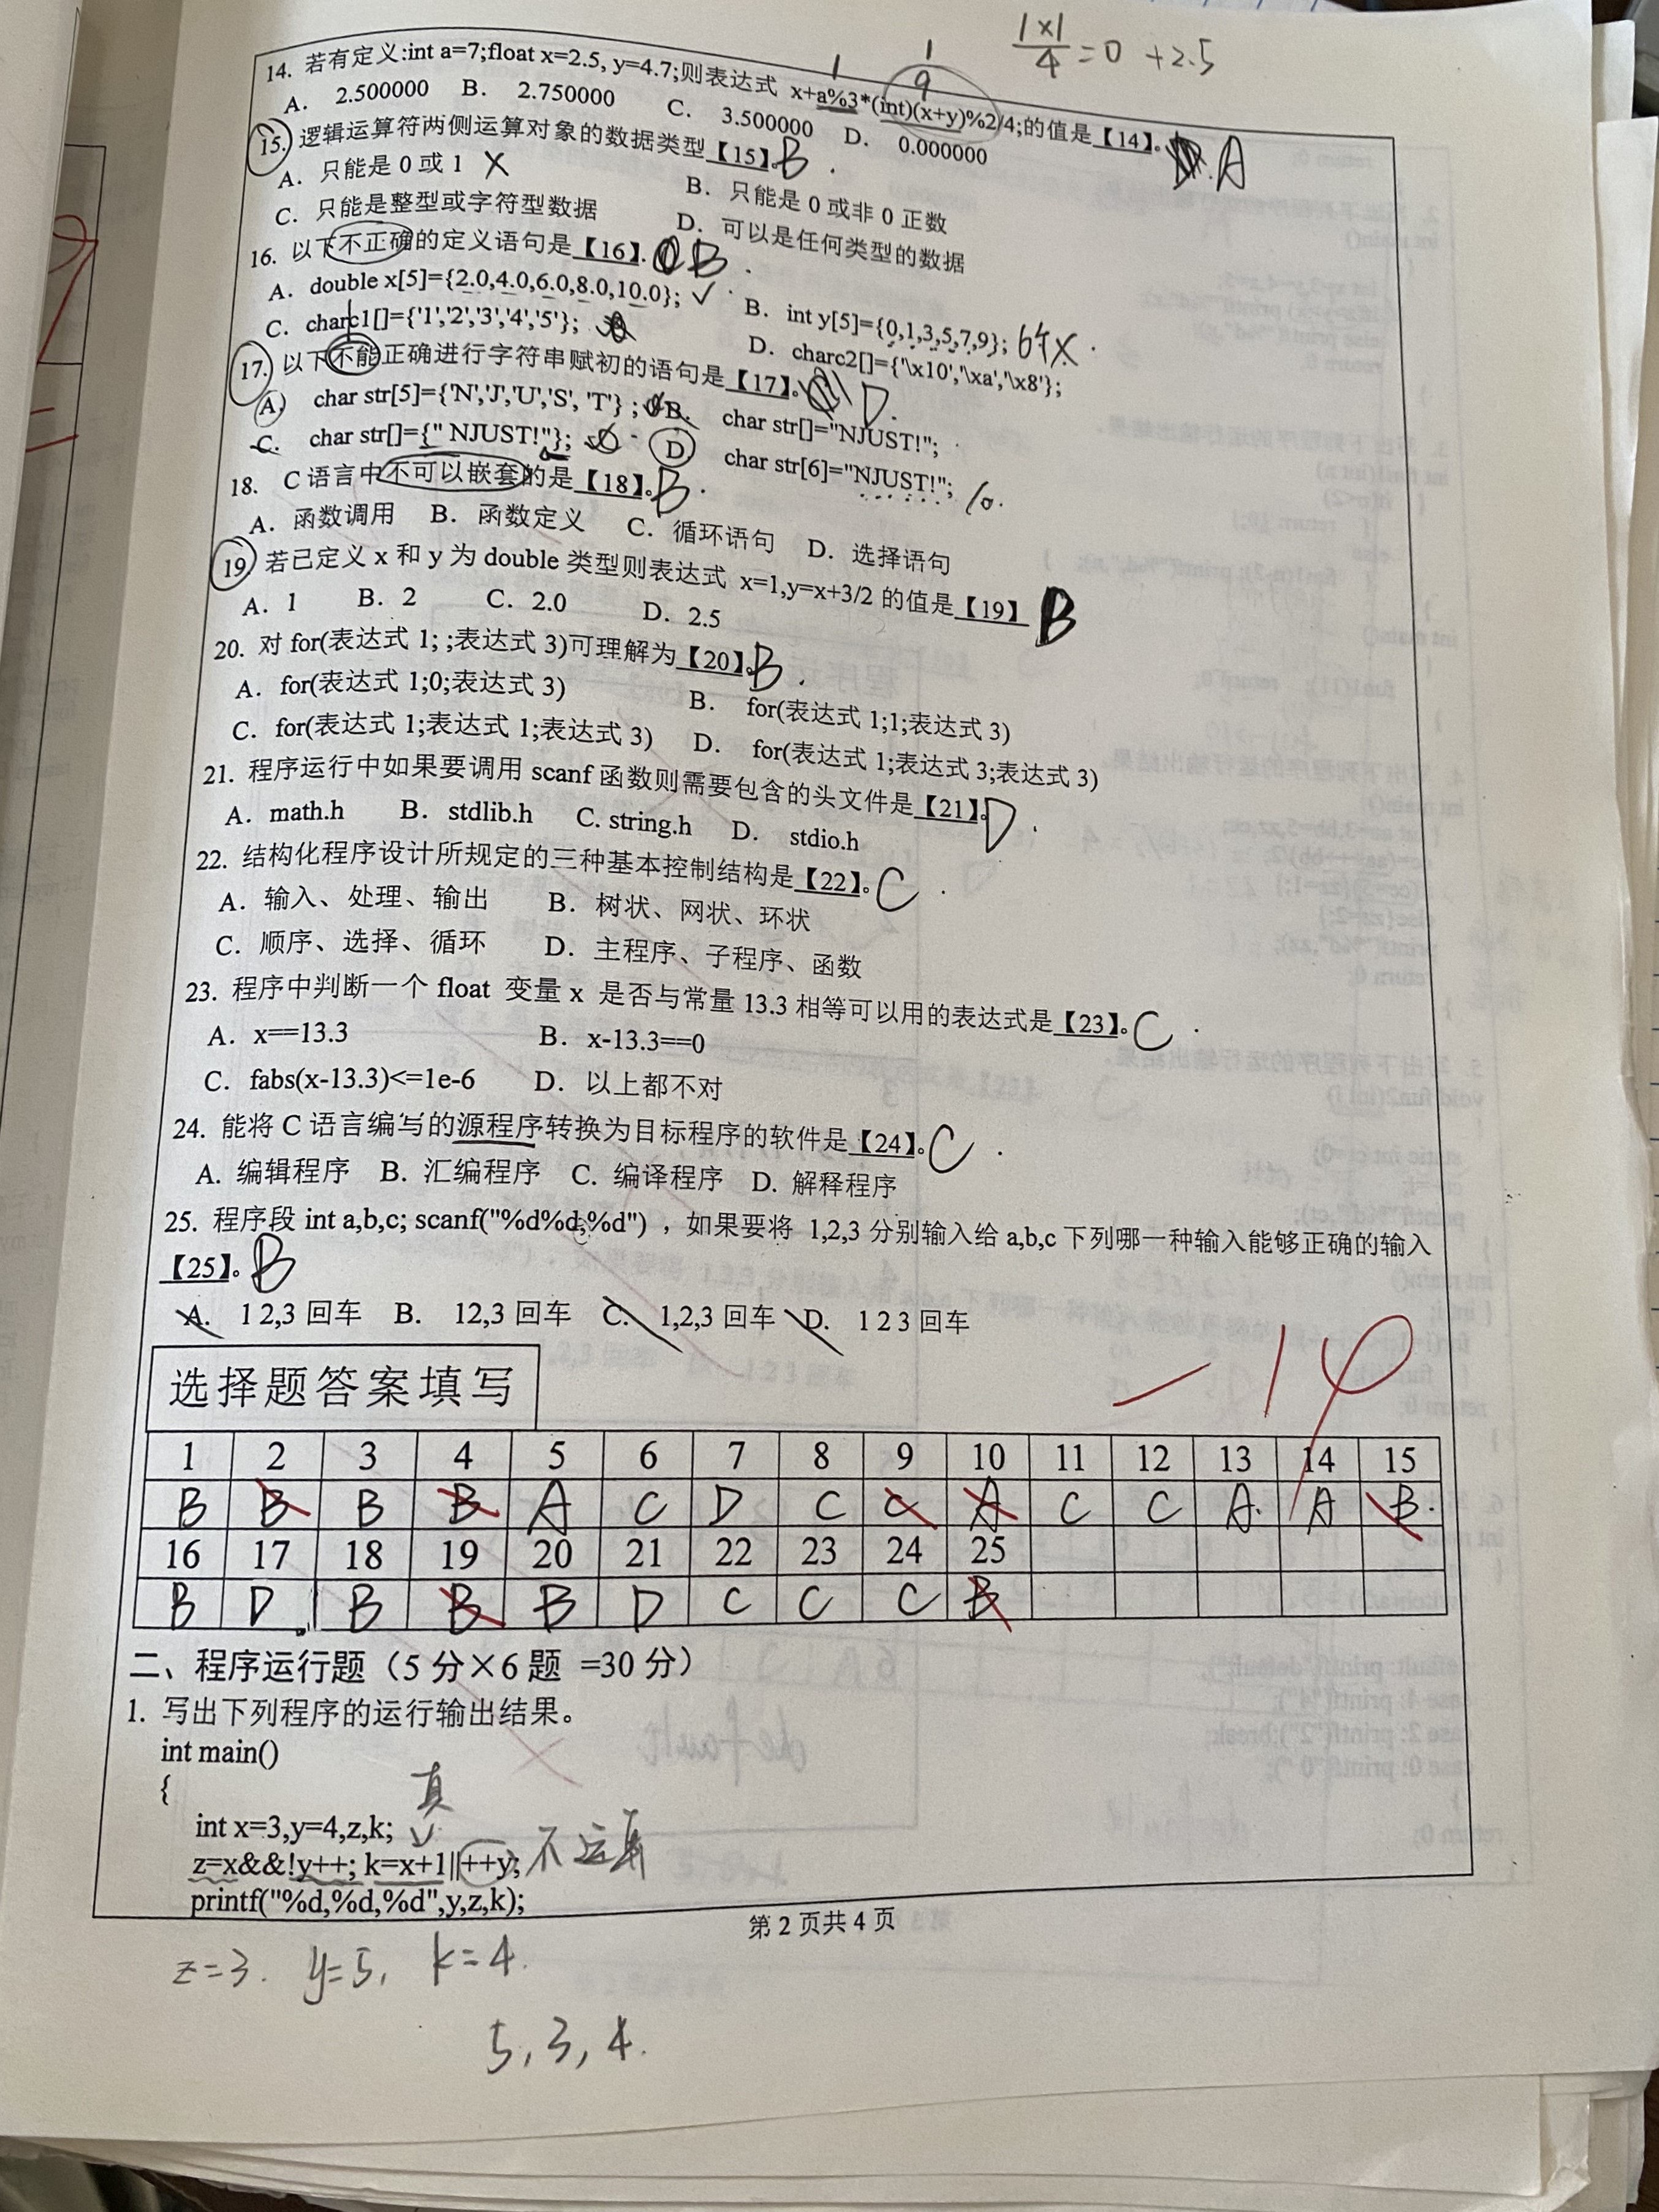 1×1/4=0 +2.5
14. 若有定义:int a=7;float x=2.5, y=4.7;则表达式 x+a%3*(int)(x+y)%2/4;的值是【14】。A
1 1
9
A. 2.500000 B. 2.750000 C. 3.500000 D. 0.000000
15. 逻辑运算符两侧运算对象的数据类型【15】。B
A. 只能是 0 或 1 X B. 只能是 0 或非 0 正数
C. 只能是整型或字符型数据 D. 可以是任何类型的数据
16. 以下不正确的定义语句是【16】. B
A. double x[5]={2.0,4.0,6.0,8.0,10.0}; ✓ B. int y[5]={0,1,3,5,7,9}; 6个X
C. charc1[]={'1','2','3','4','5'}; D. charc2[]={'\x10','\xa','\x8'};
17. 以下不能正确进行字符串赋初的语句是【17】。D.
A. char str[5]={'N','J','U','S', 'T'} ; B. char str[]="NJUST!";
C. char str[]={" NJUST!"}; D. char str[6]="NJUST!";
18. C 语言中不可以嵌套的是【18】。B
A. 函数调用 B. 函数定义 C. 循环语句 D. 选择语句
19. 若已定义 x 和 y 为 double 类型则表达式 x=1,y=x+3/2 的值是【19】 B
A. 1 B. 2 C. 2.0 D. 2.5
20. 对 for(表达式 1; ;表达式 3)可理解为【20】。B
A. for(表达式 1;0;表达式 3) B. for(表达式 1;1;表达式 3)
C. for(表达式 1;表达式 1;表达式 3) D. for(表达式 1;表达式 3;表达式 3)
21. 程序运行中如果要调用 scanf 函数则需要包含的头文件是【21】。D
A. math.h B. stdlib.h C. string.h D. stdio.h
22. 结构化程序设计所规定的三种基本控制结构是【22】。C
A. 输入、处理、输出 B. 树状、网状、环状
C. 顺序、选择、循环 D. 主程序、子程序、函数
23. 程序中判断一个 float 变量 x 是否与常量 13.3 相等可以用的表达式是【23】。C
A. x==13.3 B. x-13.3==0
C. fabs(x-13.3)<=1e-6 D. 以上都不对
24. 能将 C 语言编写的源程序转换为目标程序的软件是【24】。C
A. 编辑程序 B. 汇编程序 C. 编译程序 D. 解释程序
25. 程序段 int a,b,c; scanf("%d%d,%d") ，如果要将 1,2,3 分别输入给 a,b,c 下列哪一种输入能够正确的输入
【25】。B
A. 1 2,3 回车 B. 12,3 回车 C. 1,2,3 回车 D. 1 2 3 回车
选择题答案填写
-14
1 2 3 4 5 6 7 8 9 10 11 12 13 14 15
B B B B A C D C C A C C A. A B.
16 17 18 19 20 21 22 23 24 25
B D B B B D C C C B
二、程序运行题（5 分×6 题 =30 分）
1. 写出下列程序的运行输出结果。
int main()
{
真
int x=3,y=4,z,k;
z=x&&!y++; k=x+1||++y; 不运算
printf("%d,%d,%d",y,z,k);
第 2 页共 4 页
z=3. y=5, k=4.
5,3,4.